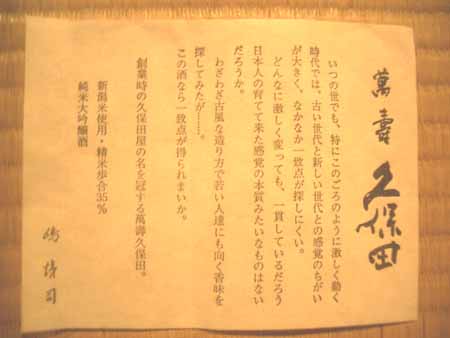 萬寿
久保田
いつの世でも、特にこのごろのように激しく動く
時代では、古い世代と新しい世代との感覚のちがい
が大きく、なかなか一致点が探しにくい。
どんなに激しく変っても、一貫しているだろう
日本人の育てて来た感覚の本質みたいなものはない
だろうか。
わざわざ古風な造り方で若い人達にも向く香味を
探してみたが……。
この酒なら一致点が得られまいか。
創業時の久保田屋の名を冠する萬壽久保田。
新潟米使用・精米歩合35%
純米大吟醸酒